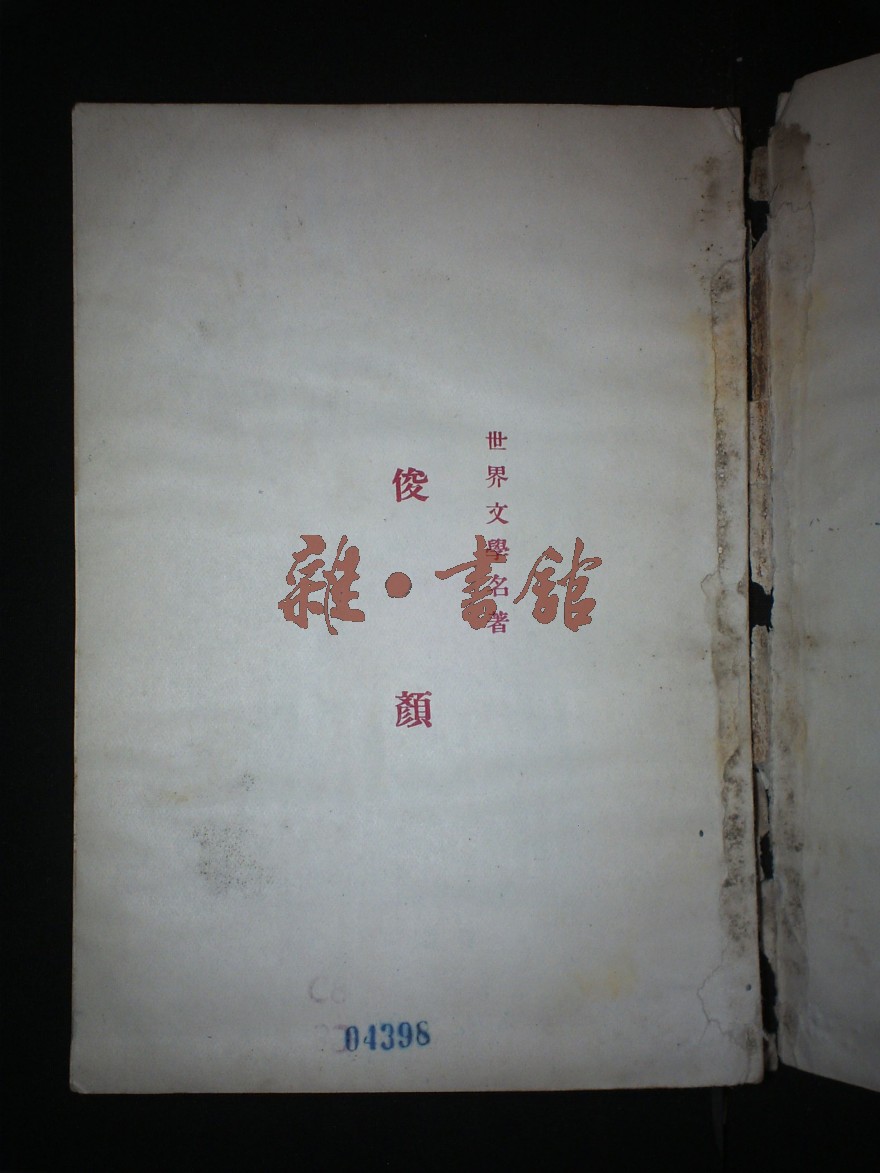 世界文學名著
俊顏
雜·書舘
C8
04398